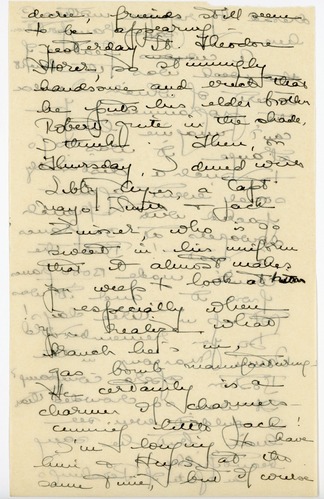 decree, friends still seem
to be appearing -
yesterday Lt. Theodore
so stunningly
handsome and erect that
he puts his elder brother
Robert quite in the shade,
I think. Then, on
Thursday, I dined with
Libby, a Capt
+ Jack
Zinsser, who is so
sweet in his uniform
that it almost makes
you weep to look at him
- especially when
you realize what
branch he's in,
gas bomb manufacturing -
He certainly is a
charmer of charmers -
cunning little Jack!
I'm longing to have
him & Hugs at the
same time, but of course